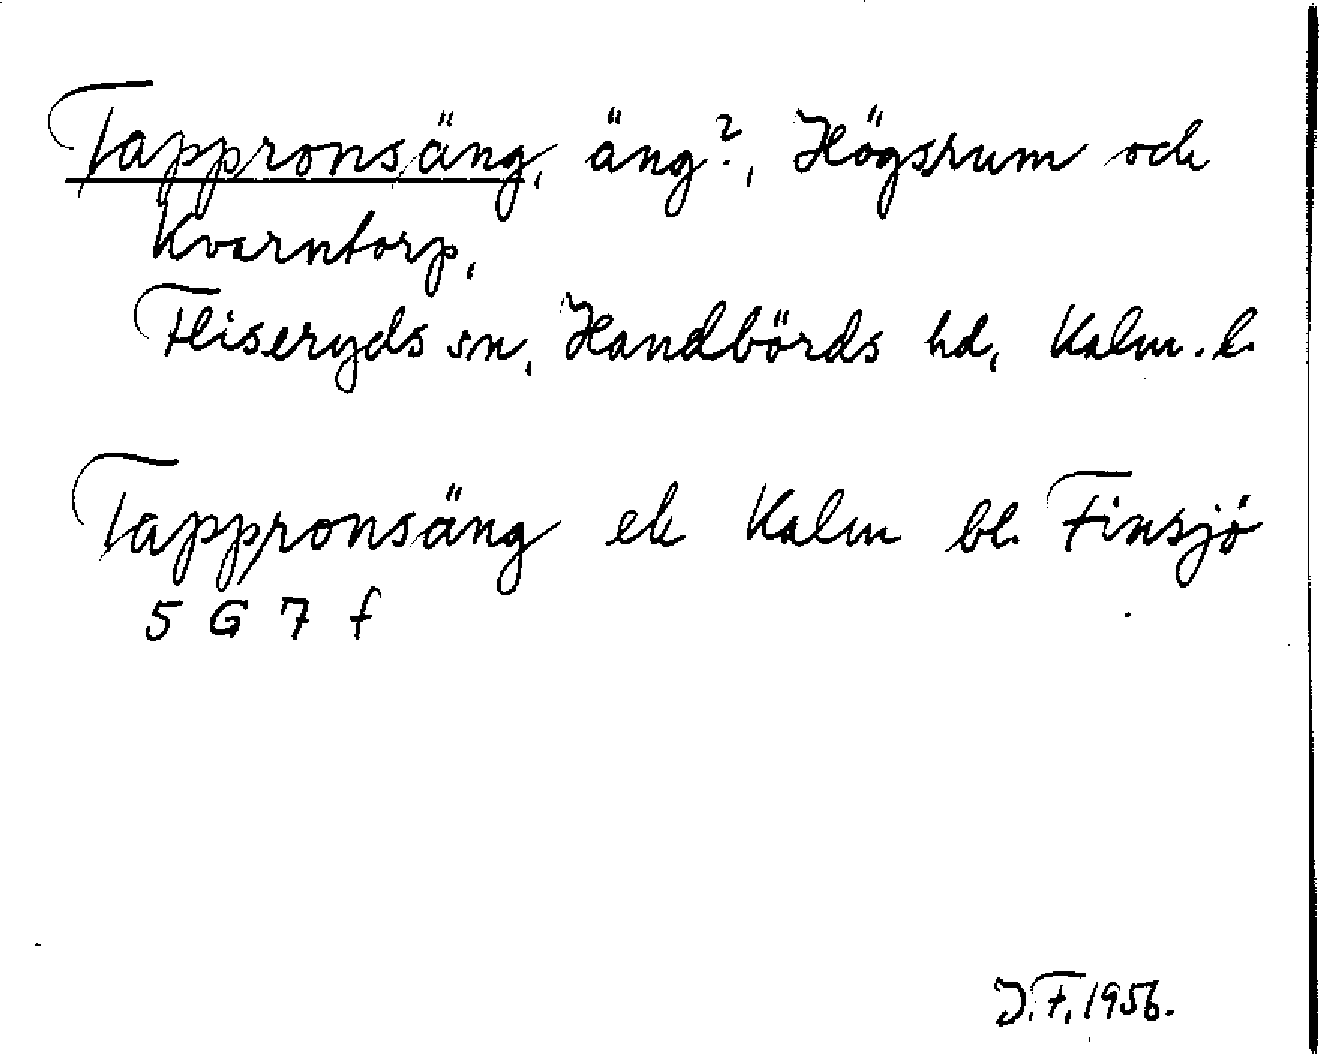 Tappronsäng, äng?, Högsrum och
Kvarntorp,
Fliseryds sn, Handbörds hd, Kalm. l.
Tappronsäng ek Kalm bl. Finsjö
5 G 7 f
J.F. 1956.